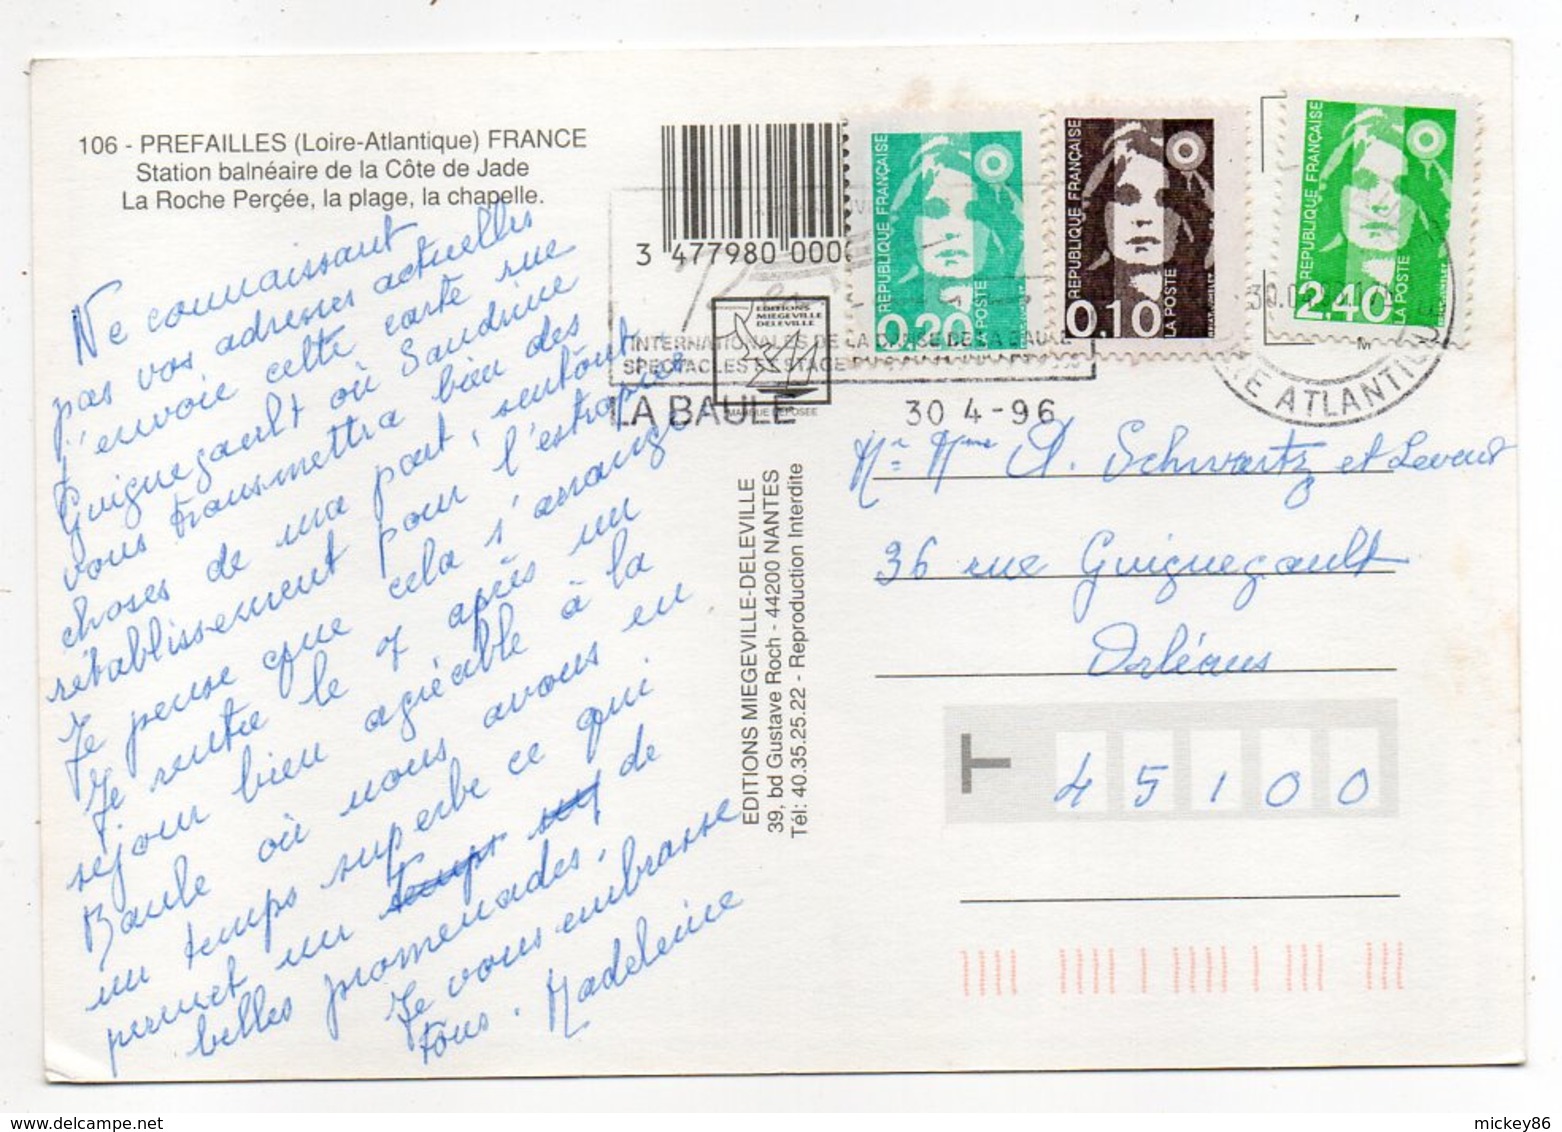 106 - PREFAILLES (Loire-Atlantique) FRANCE
Station balnéaire de la Côte de Jade
La Roche Perçée, la plage, la chapelle.
Ne connaissant
pas vos adresses actuelles
j'envoie cette carte rue
Guiguegault où Sandrine
vous transmettra bien des
choses de ma part, surtout
rétablissement pour l'estropié
Je pense que cela s'arrange.
Je rentre le 7 après un
séjour bien agréable à la
Baule où nous avons eu
un temps superbe ce qui
permet un temps de
belles promenades.
Je vous embrasse
tous. Madeleine
3 477980 000
EDITIONS
MIEGEVILLE
DELEVILLE
MARQUE DEPOSEE
INTERNATIONALES DE LA DANSE DE LA BAULE
SPECTACLES ET STAGE
LA BAULE
30 4-96
REPUBLIQUE FRANÇAISE
0,20
LA POSTE
REPUBLIQUE FRANÇAISE
0,10
LA POSTE
REPUBLIQUE FRANÇAISE
2,40
LA POSTE
ATLANTIQUE
EDITIONS MIEGEVILLE-DELEVILLE
39, bd Gustave Roch - 44200 NANTES
Tél: 40.35.25.22 - Reproduction Interdite
Mr Mme A. Schwartz et Levent
36 rue Guiguegault
Orléans
T 45100
mickey86